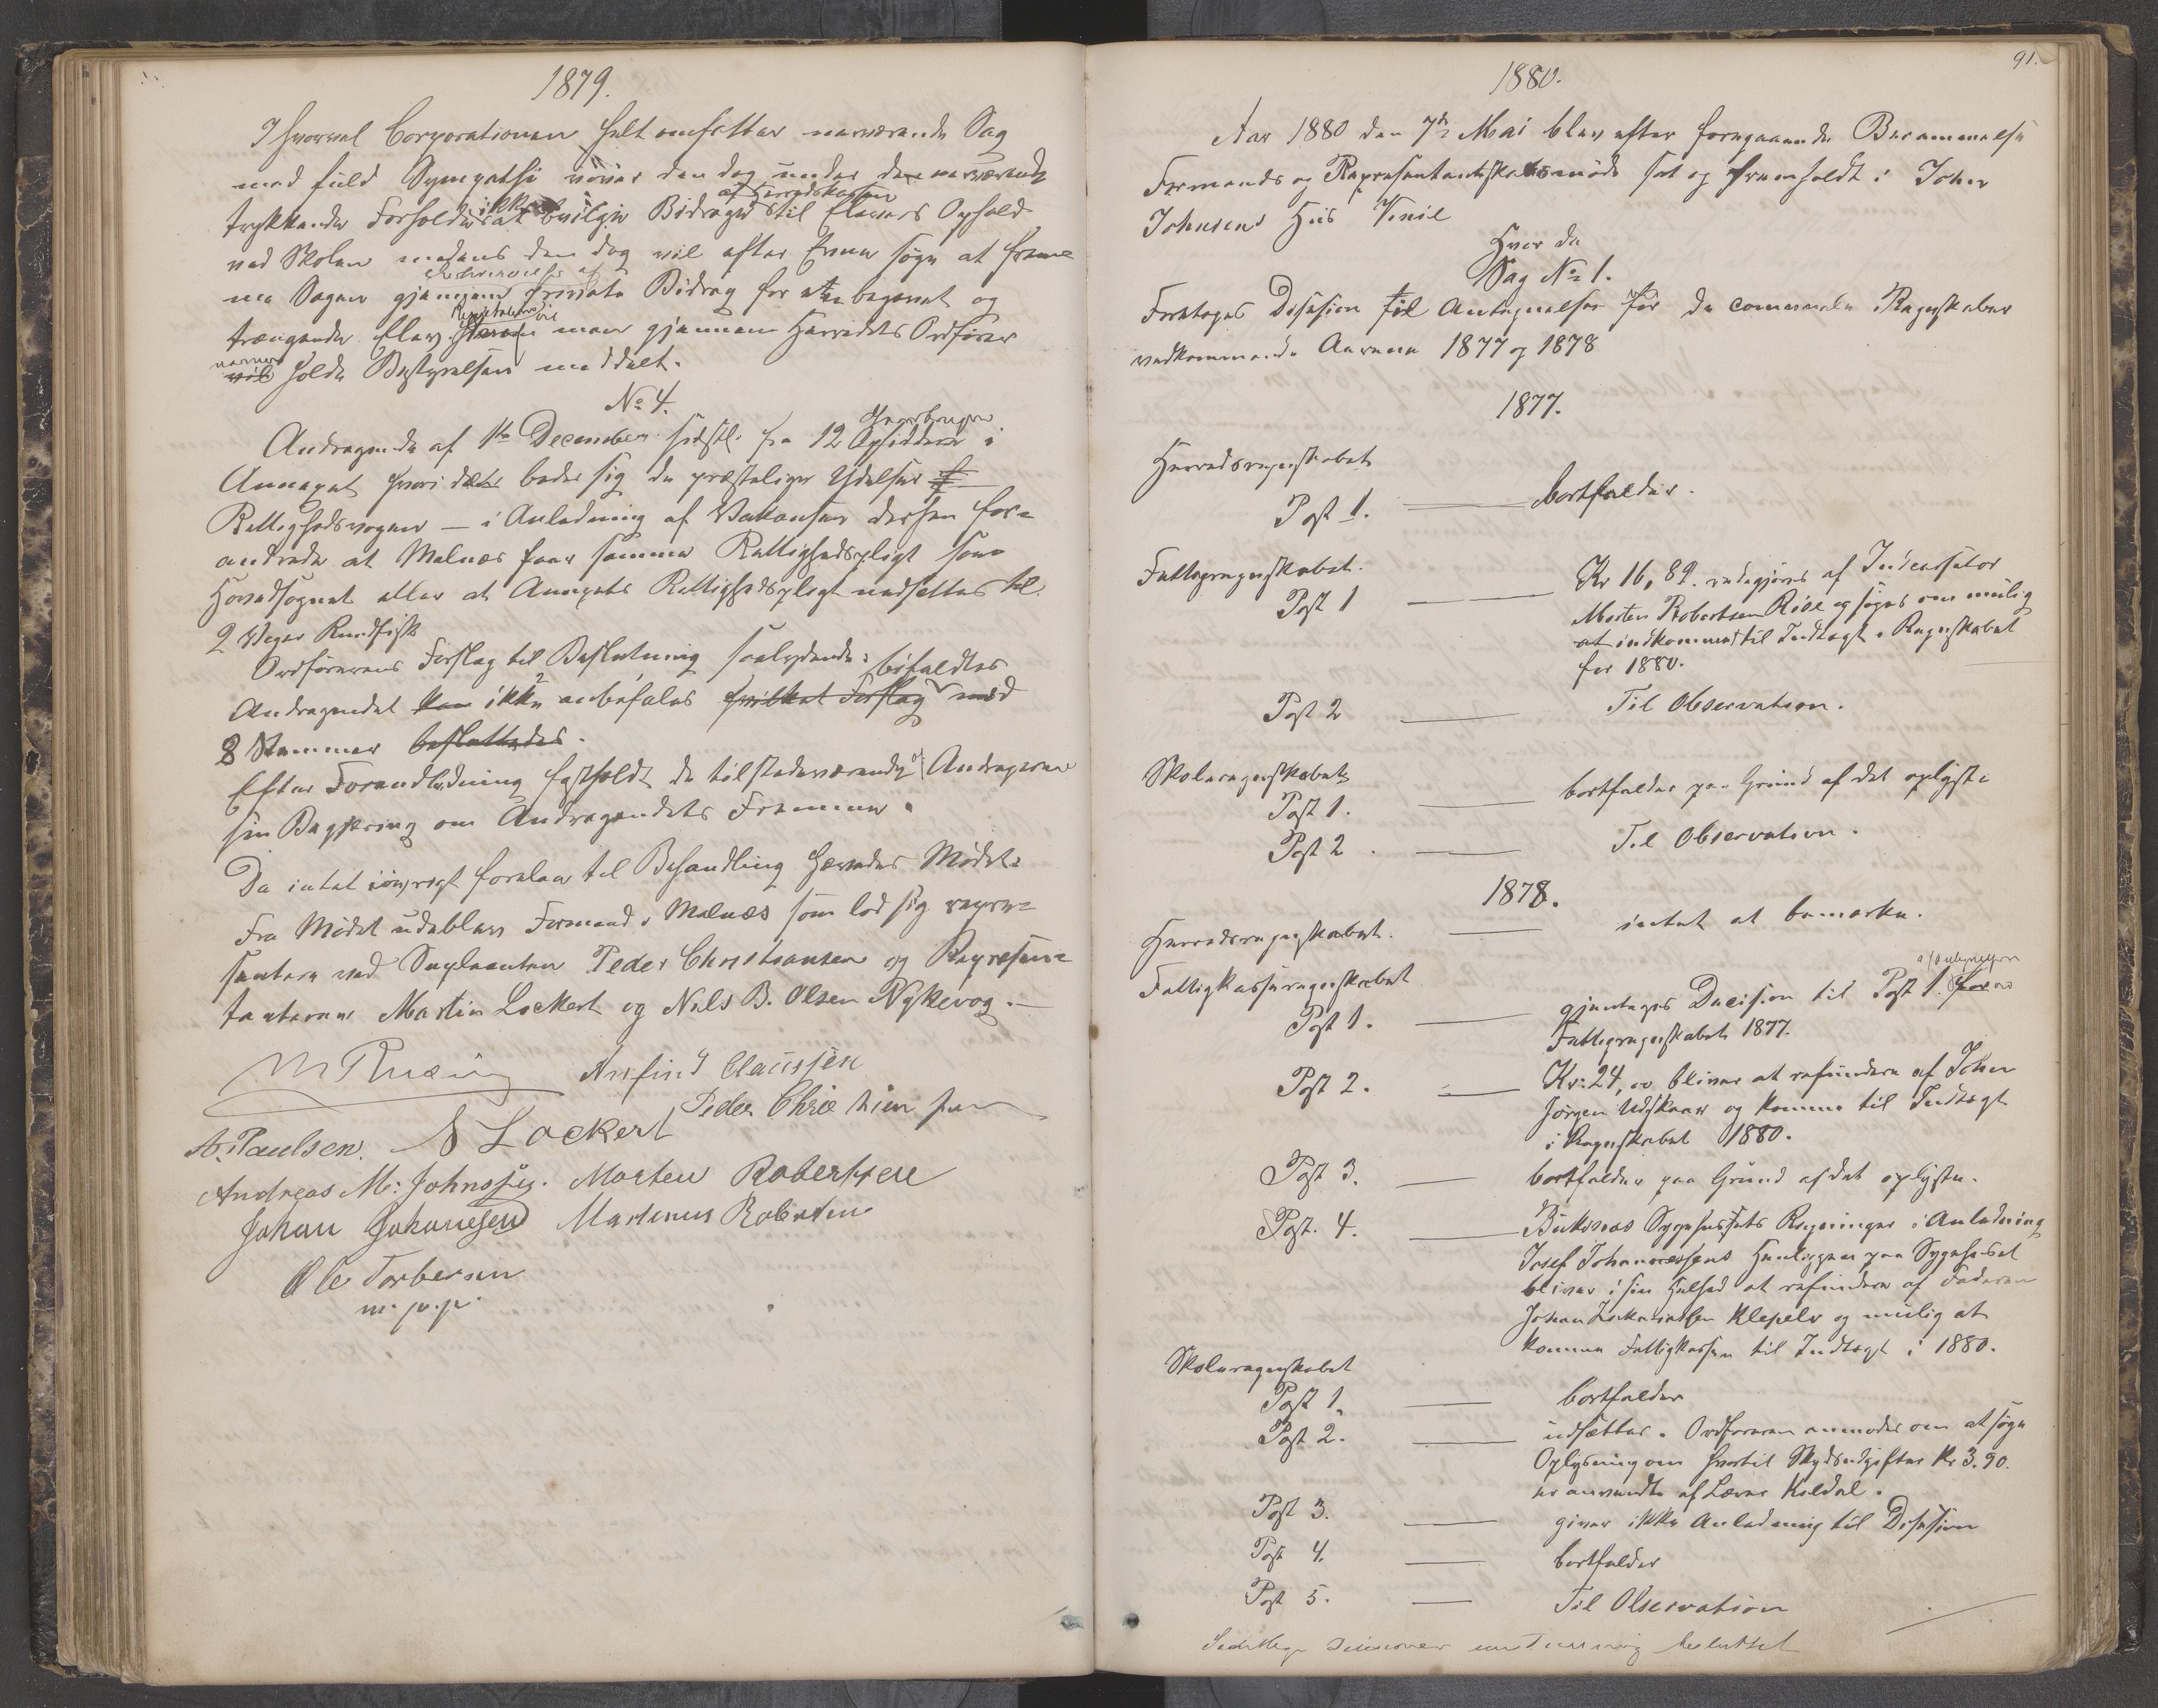 1879.
I hvorvel Corporationen helt omfatter nærværende Sag
med fuld Sympathi vover den dog under de nærværende
trykkende Forholde ikke at bevilge Bidraget af Herredskassen til Elevers Ophold
ved Skolen medens den dog vil efter Evne søge at frem-
me Sagen gjennem private Bidrag for een begavet og
trængende Elev. man gjennem Herredets Ordfører
vil holde Bestyrelsen meddelt.
No 4.
Andragende af 1ste December sidstl. fra 12 Opsiddere i
Annexet hvori dette beder sig de præstelige Ydelser
Rettighedsvogen — i Anledning af Vakansen derhen for-
andrede at Malnes faar samme Rettighedspligt som
Hovedsognet eller at Annexets Rettighedspligt nedsættes til
2 Voger Rundfisk
Ordførerens Forslag til Beslutning saalydende:
Andragendet kan ikke anbefales hvilket Forslag bifaldtes med
8 Stemmer besluttedes.
Efter Foranledning fastholdt de tilstedeværende af Andragerne
sin Begjæring om Andragendets Fremme.
Da intet iøvrigt forelaa til Behandling hævedes Mødet.
Fra Mødet udeblev Formand i Malnes som lod sig repræ-
sentere ved Suplianten Peder Christiansen og Repræsen-
tanterne Martin Lockert og Nils B. Olsen Nykevog.
Arnfind Claussen
Peder Christiansen
A. Paulsen. S Lockert
Andreas M: Johnsen. Morten Robertsen
Johan Johannesen Martinus Robertsen
Ole Torbersen
m. p. p.
91.
1880.
Aar 1880 den 7de Mai blev efter foregaaende Berammelse
Formands og Repræsentantskabsmøde sat og fremholdt i John
Johnsens Huus Vinie
Hvor da
Sag No 1.
Foretoges Desision til Antegnelser for de communale Regnskaber
vedkommende Aarene 1877 og 1878
1877.
Herredsregnskabet
Post 1. — bortfalder.
Fattigregnskabet.
Post 1 — Kr 16,89. redegjøres af Indcassator
Morten Robertsen Rise og søges om mulig
at indkomme til Indtægt i Regnskabet
for 1880.
Post 2 — Til Observation.
Skoleregnskabet
Post 1. — bortfalder paa Grund af det oplyste
Post 2 — Til Observation.
1878.
Herredsregnskabet. — intet at bemærke.
Fattigkasseregnskabet
Post 1. — gjentages Decision til Post 1 for
Fattigregnskabet 1877.
Post 2. — Kr: 24,00 bliver at refundere af John
Jørgen Udskaar og komme til Indtægt
i Regnskabet 1880.
Post 3. — bortfalder paa Grund af det oplyste.
Post. 4. — Buksnes Sygehusets Regninger i Anledning
Josef Johannessens Henliggen paa Sygehuset
bliver i sin Helhed at refundere af Faderen
Johan Zachariassen Klepelv og mulig at
komme Fattigkassen til Indtægt i 1880.
Skoleregnskabet
Post 1. — bortfalder
Post 2. — udsættes. Ordføreren anmodes om at søge
Oplysning om hvortil Skydsudgifter Kr 3.90.
er anvendte af Lærer Keldal.
Post 3. — giver ikke Anledning til Desision
Post 4. — bortfalder
Post 5. — Til Observation
beslutted